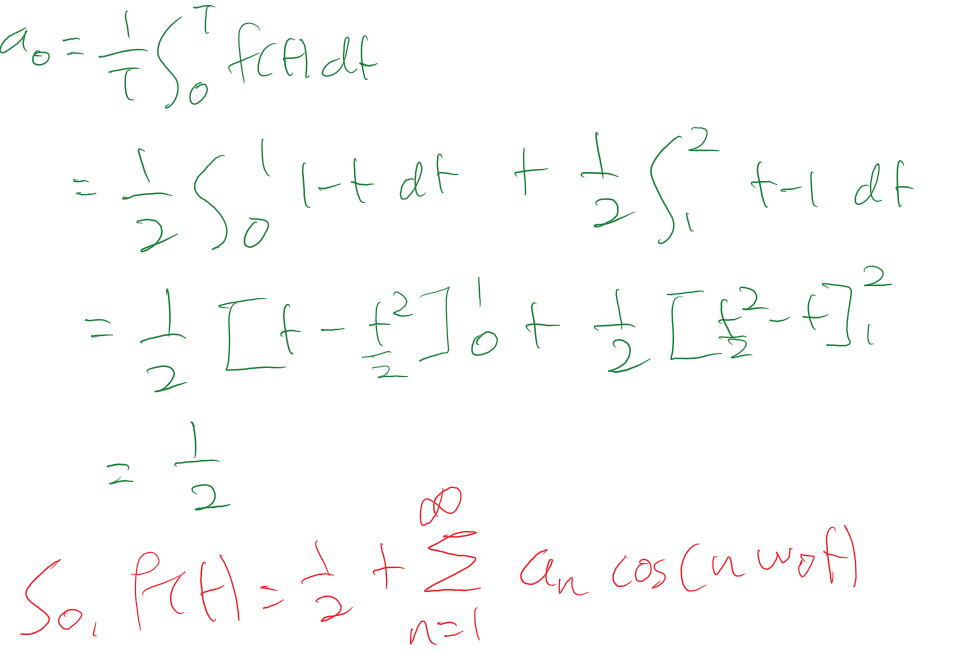 a₀ = 1/T ∫₀ᵀ f(t) dt
= 1/2 ∫₀¹ 1-t dt + 1/2 ∫₁² t-1 dt
= 1/2 [t - t²/2]₀¹ + 1/2 [t²/2 - t]₁²
= 1/2
So, f(t) = 1/2 + ∑ₙ₌₁^∞ aₙ cos(n w₀t)